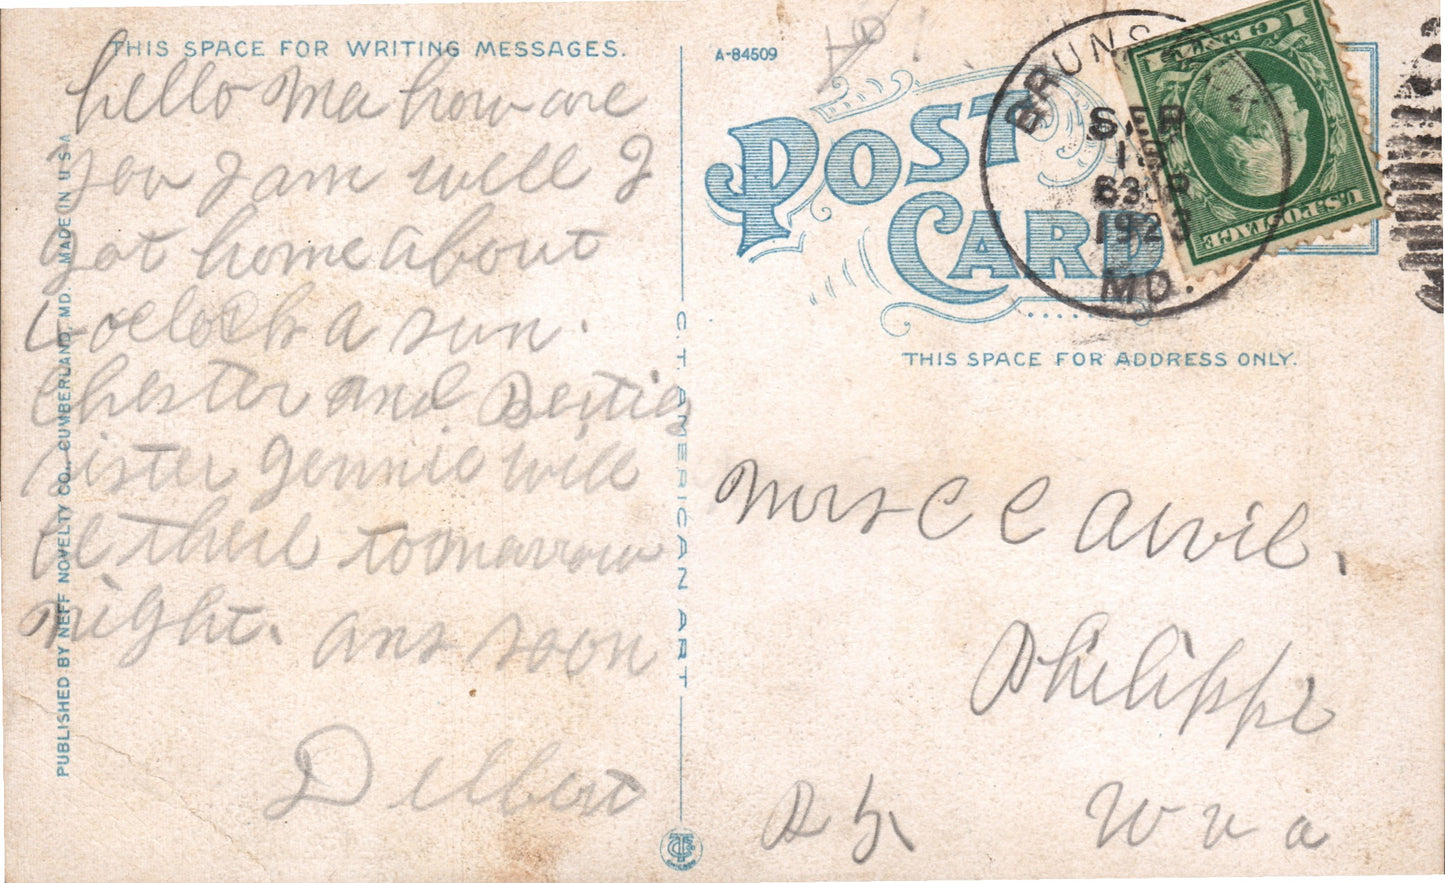 THIS SPACE FOR WRITING MESSAGES.
hello Ma how are
you I am well I
got home about
oclock a sun.
Chester and Berties
sister Jennie will
be there tomarrow
night. ans soon
Delbert
PUBLISHED BY NEFF NOVELTY CO., CUMBERLAND, MD. MADE IN U S A
C. T. AMERICAN ART
CHICAGO
A-84509
POST
CARD
BRUNSWICK
SEP
1923
MD.
1 CENT 1
U.S. POSTAGE
THIS SPACE FOR ADDRESS ONLY.
Mrs C C Arvil.
Philippi
W va